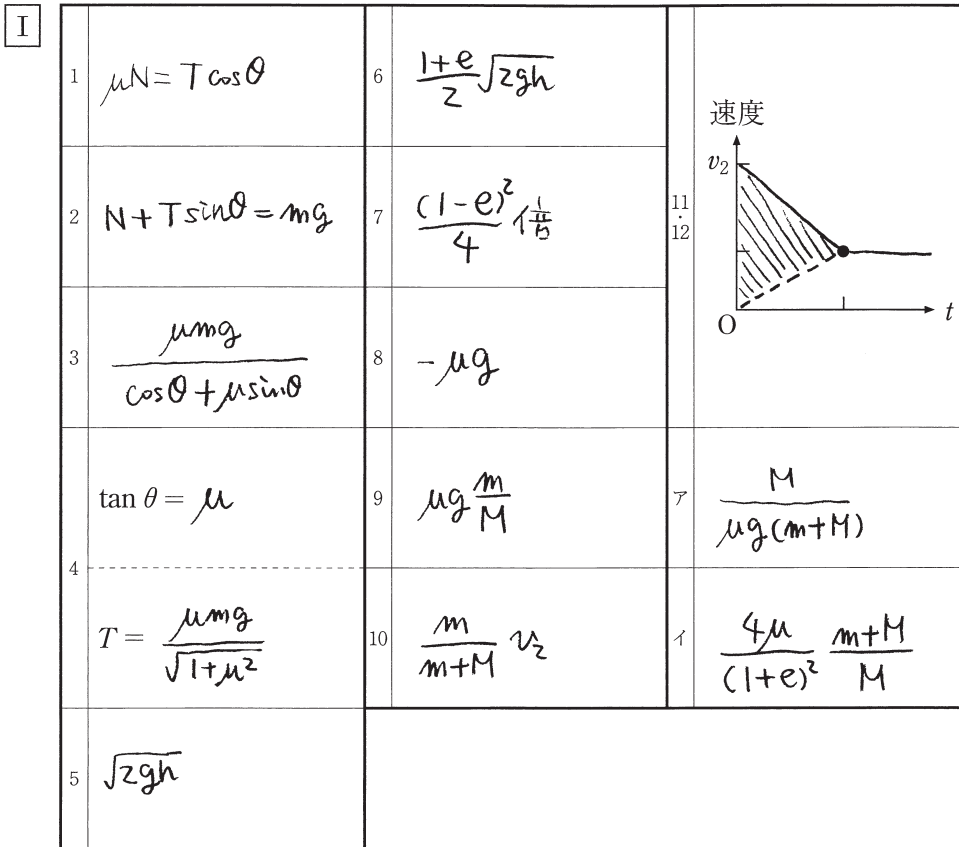 I
1 μN = T cos θ
2 N + T sin θ = mg
3 μmg / (cos θ + μ sin θ)
4 tan θ = μ
T = μmg / √(1+μ²)
5 √(2gh)
6 (1+e)/2 √(2gh)
7 (1-e)²/4 倍
8 -μg
9 μg m/M
10 m/(m+M) v₂
11・12
速度
v₂
O
t
ア M / (μg(m+M))
イ 4μ/(1+e)² (m+M)/M